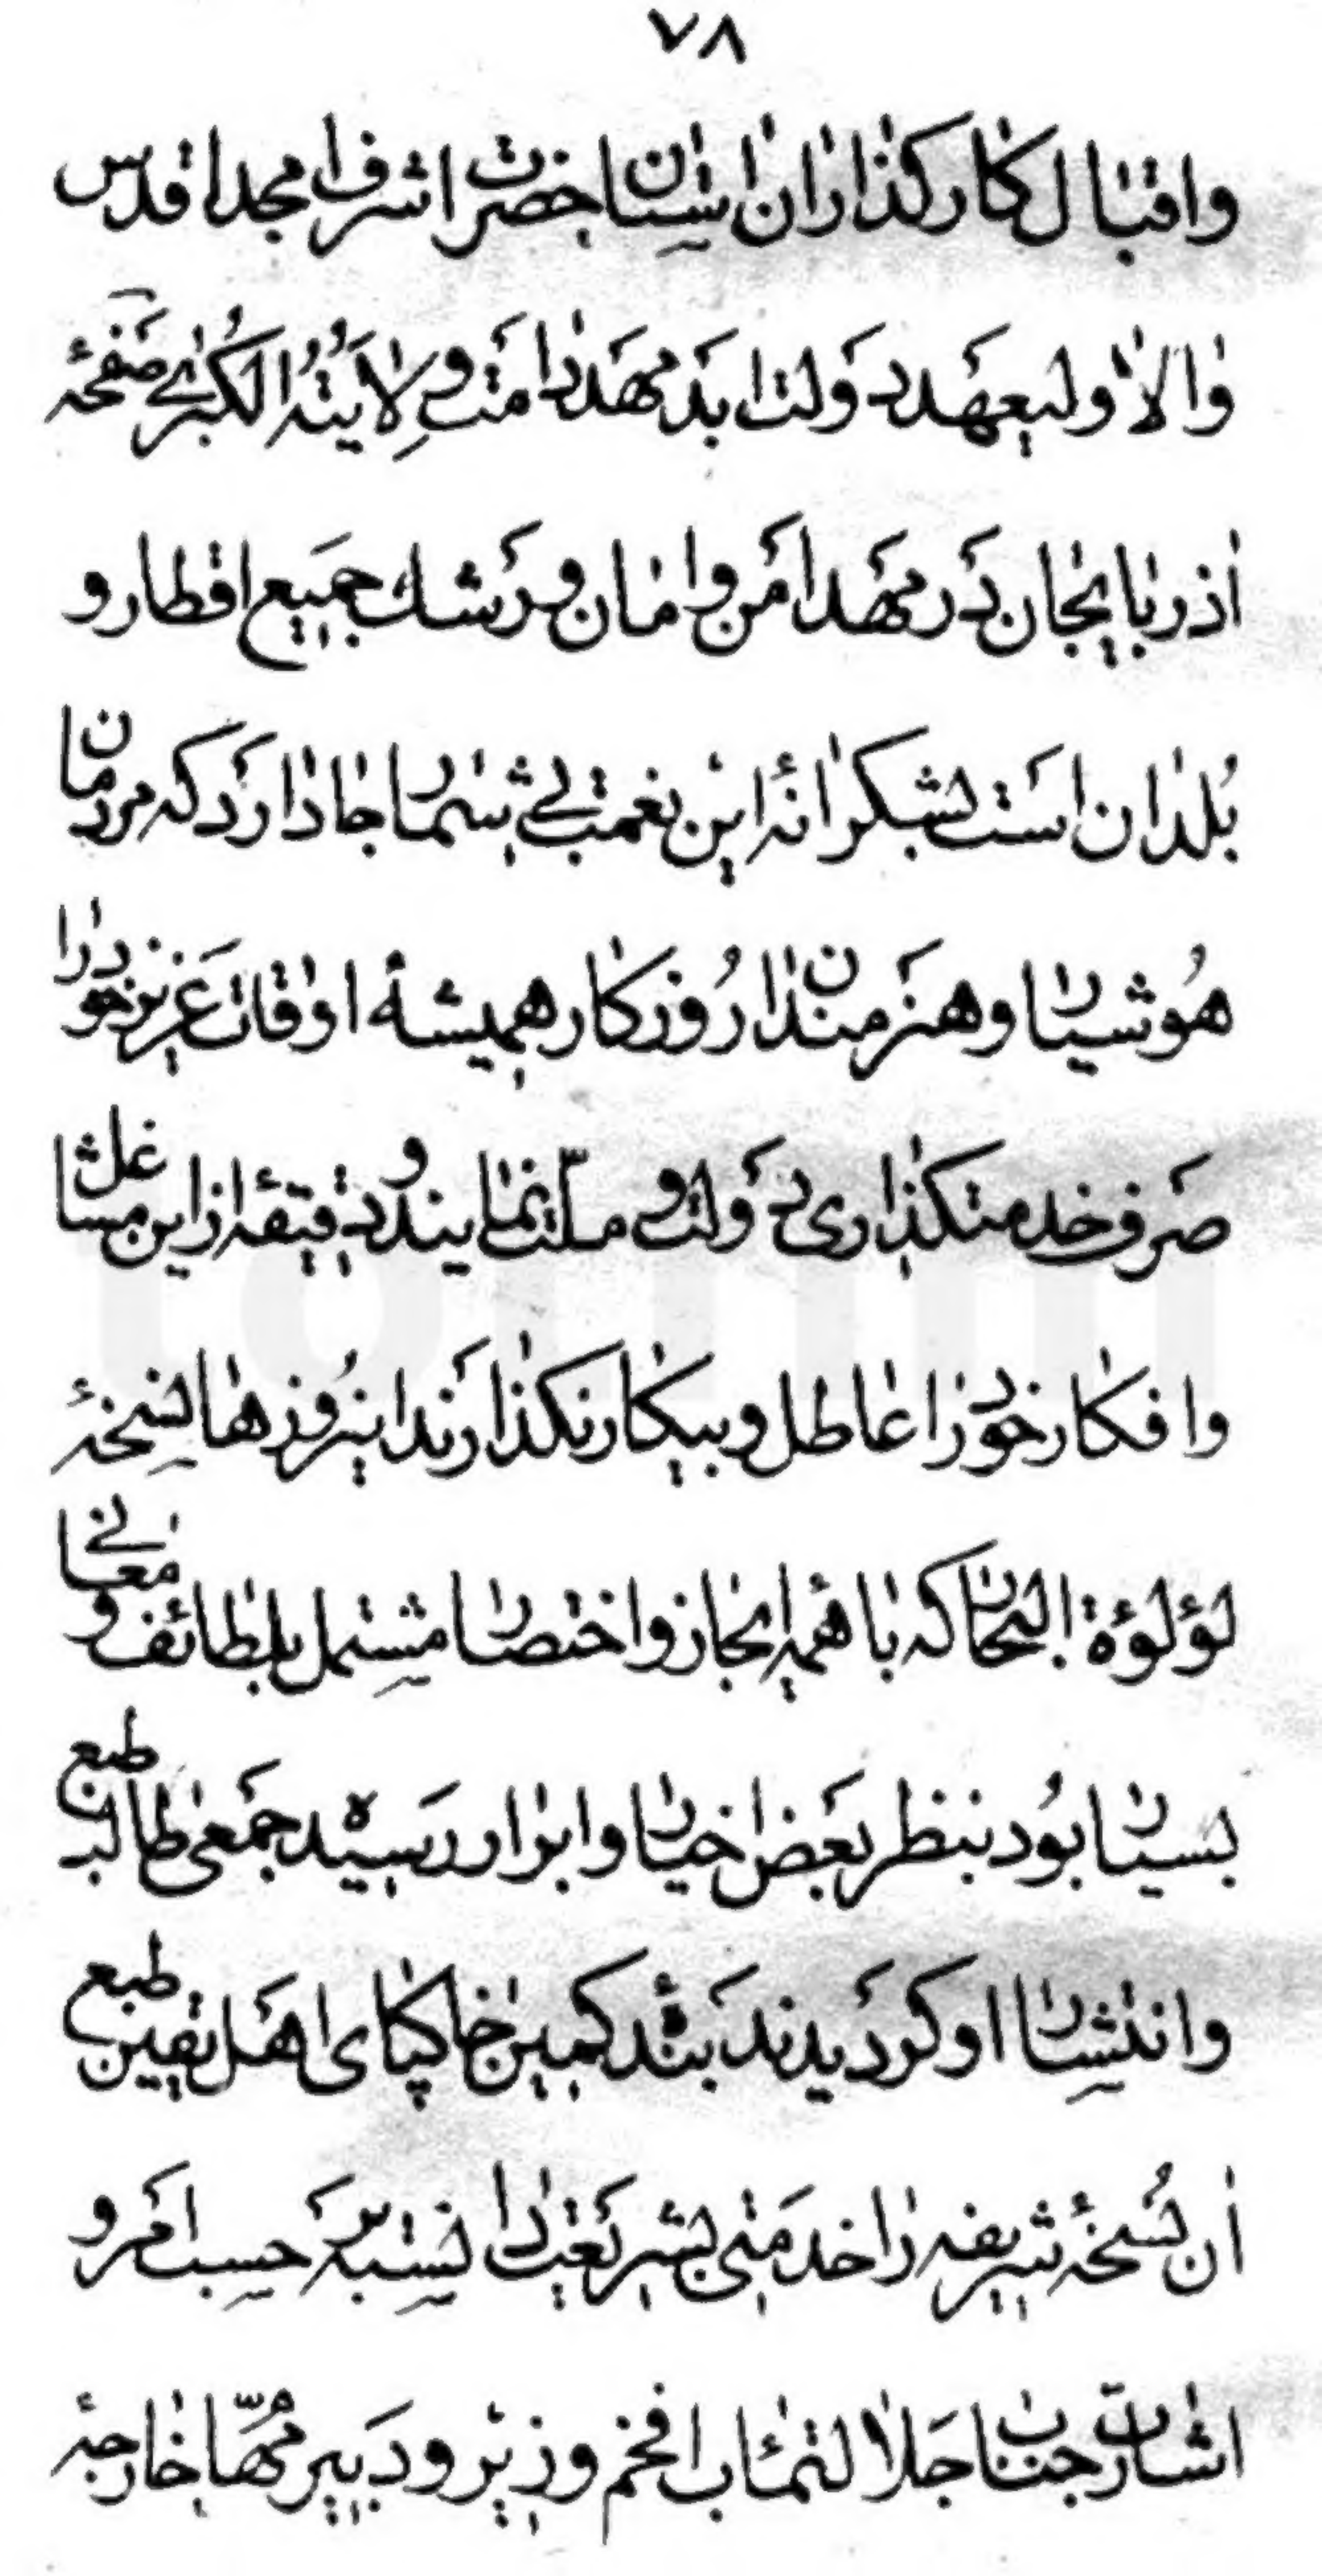 ۷۸
واقبال کارکذاران اسِتان حضرت اشرف امجد اقدس
والا ولیعهد دَولت ابَد مهَد دامَت وِلایَتُهُ الکُبری صَفحۀ
اذربایجان دَر مهَد امَن وامان و رَشك جمَیع اقطار و
بُلدان استَ بشکرانۀ این نعمت بی شمار جا دارَد که مردمان
هُوشیار و هنرَمندان رُوزکار همیشه اوقات عَزیز خود را
صَرف خدمتکذاری دَولت و ملّت نمایند و دقیقۀ از این مشاغل
وافکار خود را عاطل و بیکار نکذارَند اینرُوزها نسِخۀ
لؤلؤة البحار که با همۀ ایجاز و اختصار مشتمل بلطائف و معانی
بسیار بُود بنظر بعَض اخیار و ابرار رسَیده جمَعی طالب طبع
وانتشِار او کردَیدند بنَدۀ کمین خاکپای اهَل یقین طبع
ان نُسخۀ شریفه را خدمَتی بشَریعَت دانسِته برَحسِب امَر و
اشارۀ جناب جَلالتمئاب افخم وزیر و دَبیر مُهّام خارجۀ